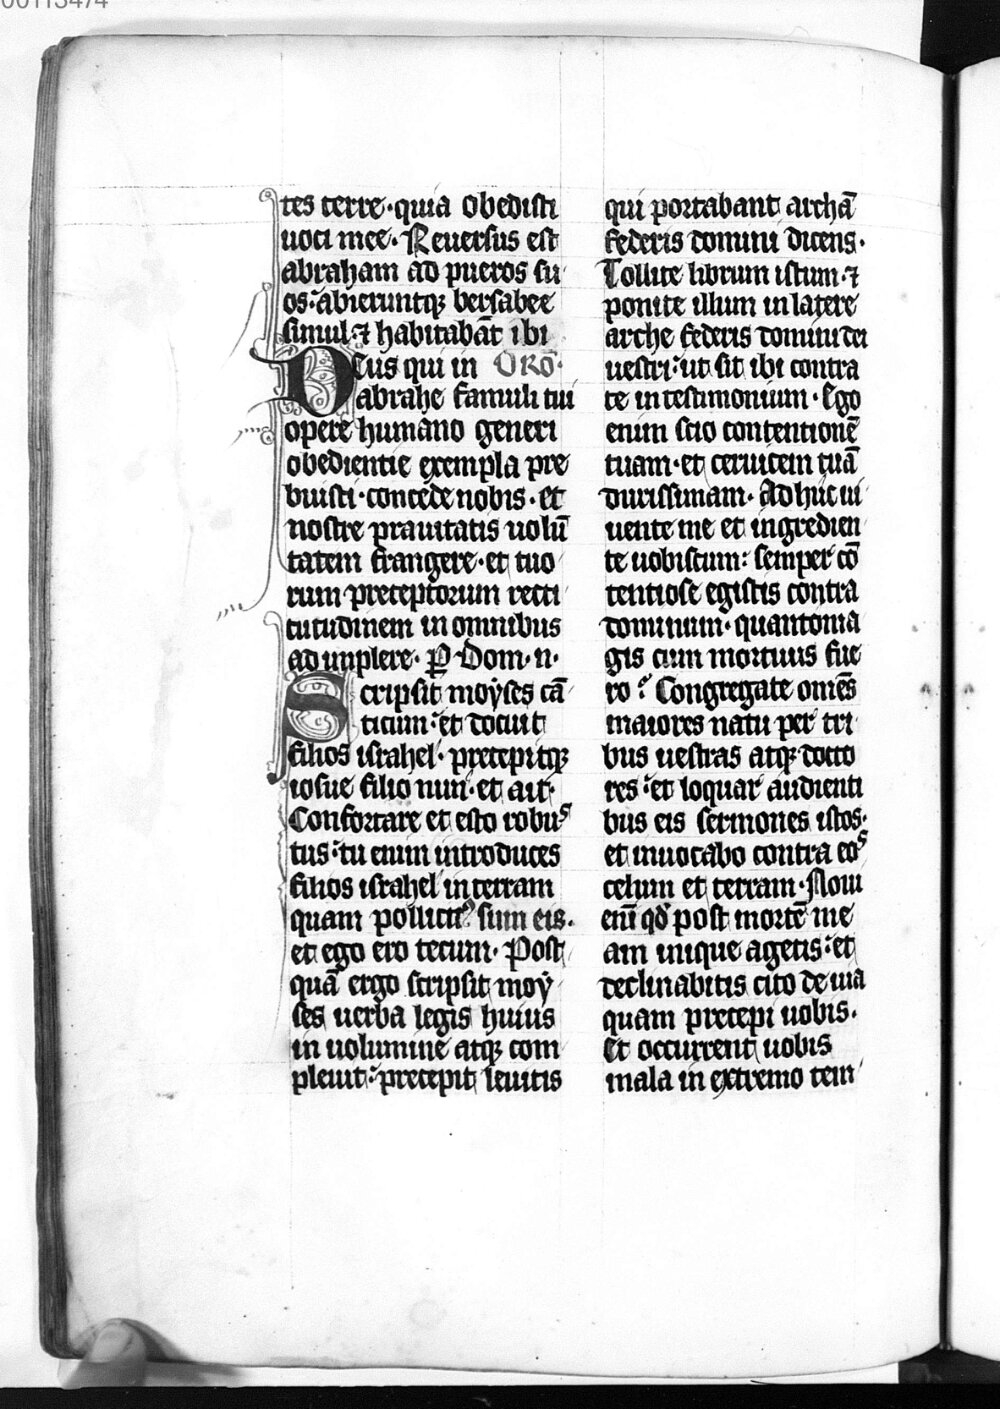 00113474
tes terre·quia obedisti
uoci mee·Reuersus est
abraham ad pueros su
os:abieruntqꝫ bersabee
simul:⁊ habitabāt ibi
Deus qui in ORŌ·
abrahe famuli tui
opere humano generi
obedientie exempla pre
buisti·concede nobis·et
nostre prauitatis uolū
tatem frangere·et tuo
rum preceptorum recti
tutudinem in omnibus
adimplere·P̲ Dom·n·
Scripsit moÿses cā
ticum:et docuit
filios israhel·precepitqꝫ
iosue filio nun·et ait·
Confortare et esto robuˢ
tus:tu enim introduces
filios israhel in terram
quam pollicitꝰ sum eis·
et ego ero tecum·Post
quā ergo scripsit moÿ
ses uerba legis huius
in uolumine atqꝫ com
pleuit:precepit leuitis
qui portabant archā
federis domini dicens·
Tollite librum istum·⁊
ponite illum in latere
arche federis domini dei
uestri:ut sit ibi contra
te in testimonium·Ego
enim scio contentionē
tuam·et ceruicem tuā
durissimam·Adhuc ui
uente me et ingredien
te uobiscum:semper cō
tentiose egistis contra
dominum·quantoma
gis cum mortuus fue
ro? Congregate omēs
maiores natu per tri
bus uestras atqꝫ docto
res:et loquar audienti
bus eis sermones istos·
et inuocabo contra eoˢ
celum et terram·Noui
enī qd̄ post mortē me
am inique agetis:et
declinabitis cito de uia
quam precepi uobis·
Et occurrent uobis
mala in extremo tem